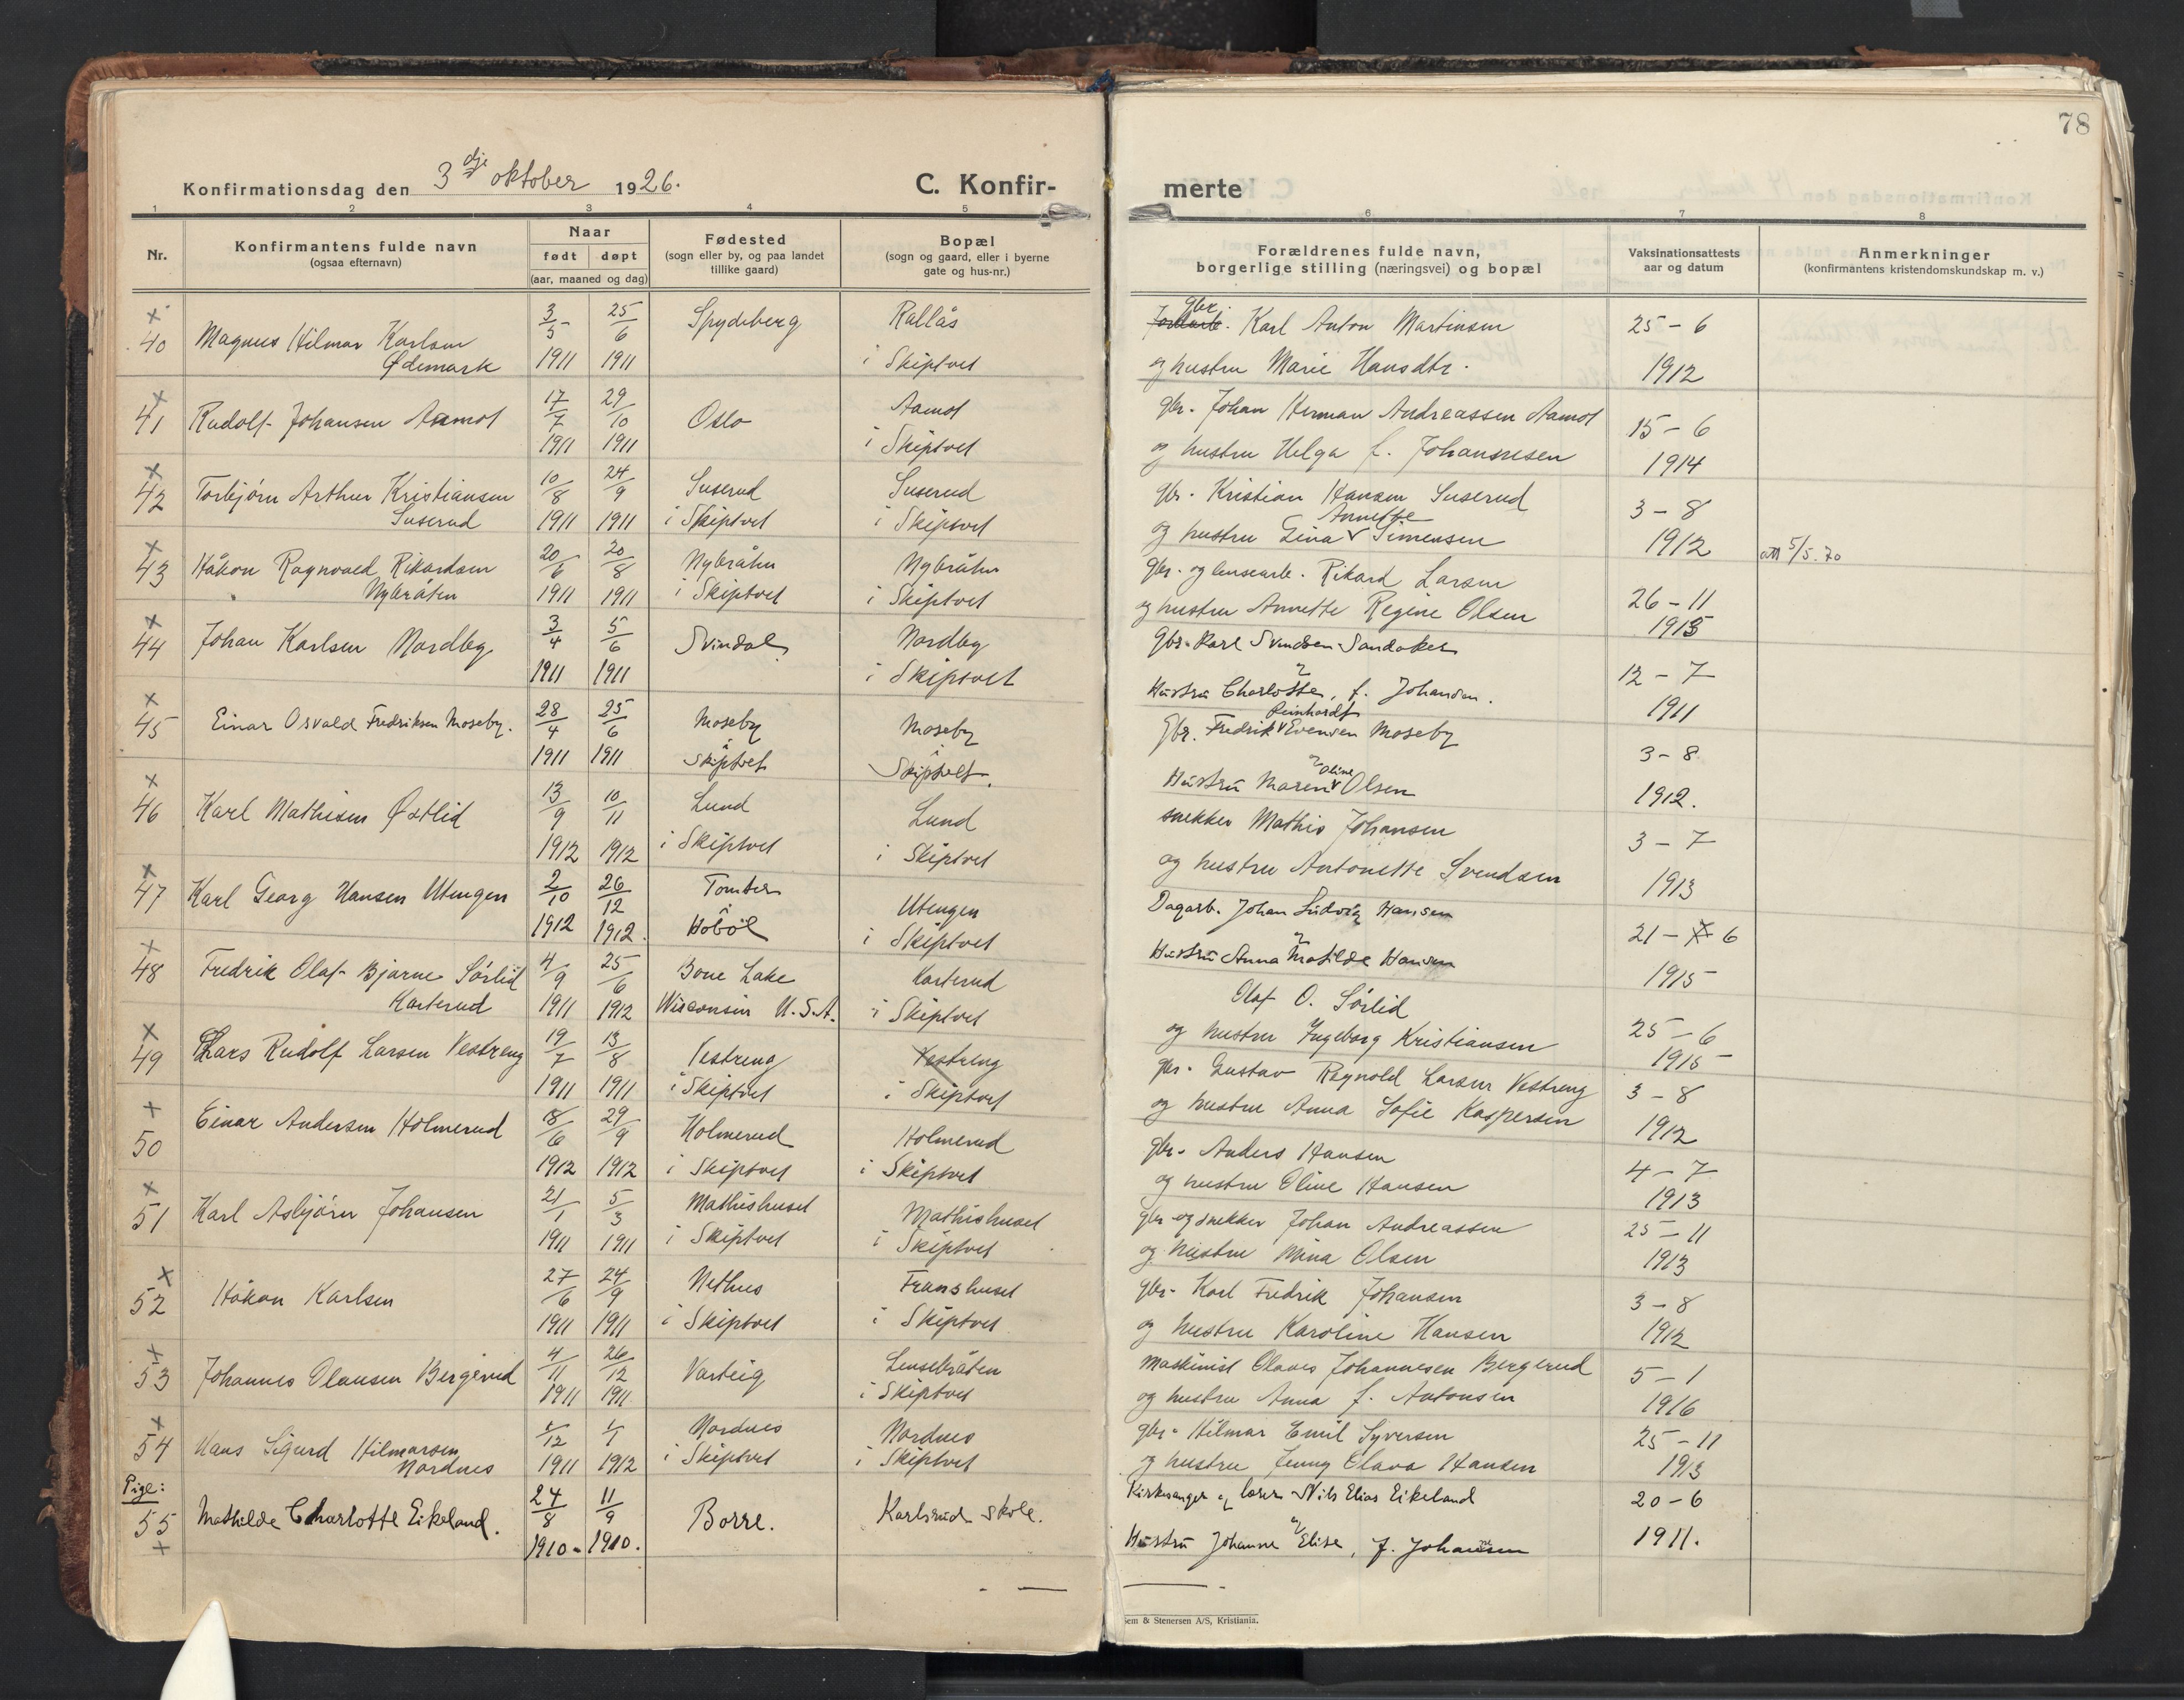 78
Konfirmationsdag den 3dje oktober 1926.
C. Konfir-
merte
1 2 3 4 5 6 7 8
Nr.
Konfirmantens fulde navn
(ogsaa efternavn)
Naar
født døpt
(aar, maaned og dag)
Fødested
(sogn eller by, og paa landet
tillike gaard)
Bopæl
(sogn og gaard, eller i byerne
gate og hus-nr.)
Forældrenes fulde navn,
borgerlige stilling (næringsvei) og bopæl
Vaksinationsattests
aar og datum
Anmerkninger
(konfirmantens kristendomskundskap m. v.)
× 40 Magnus Hilmar Karlsen 3/5 25/6 Spydeberg Rallås gbr. Karl Anton Martinsen 25 – 6
Ødemark 1911 1911 i Skiptvet og hustru Marie Hansdtr. 1912
× 41 Rudolf Johansen Aamot 17/7 29/10 Oslo Aamot gbr. Johan Herman Andreassen Aamot 15 – 6
1911 1911 i Skiptvet og hustru Helga f. Johannesen 1914
× 42 Torbjørn Arthur Kristiansen 10/8 24/9 Suserud Suserud gbr. Kristian Hansen Suserud 3 – 8
Suserud 1911 1911 i Skiptvet i Skiptvet og hustru Gina Annette Simensen 1912
× 43 Håkon Ragnvald Rikardsen 20/6 20/8 Nybråten Nybråten gbr. og lensearb. Rikard Larsen 26 – 11 att 5/5.70
Nybråten 1911 1911 i Skiptvet i Skiptvet og hustru Annette Regine Olsen 1915
× 44 Johan Karlsen Nordby 3/4 5/6 Svindal Nordby Gbr. Karl Svendsen Sandaker 12 – 7
1911 1911 i Skiptvet og Hustru Charlotte, f. Johansen. 1911
× 45 Einar Osvald Fredriksen Moseby. 28/4 25/6 Moseby Moseby Gbr. Fredrik Reinhardt Evensen Moseby 3 – 8
1911 1911 i Skiptvet i Skiptvet. og Hustru Maren Oline Olsen 1912.
× 46 Karl Mathisen Østlid 13/9 10/11 Lund Lund snekker Mathis Johansen 3 – 7
1912 1912 i Skiptvet i Skiptvet og hustru Antonette Svendsen 1913
× 47 Karl Georg Hansen Utengen 2/10 26/12 Tomter Utengen Dagarb. Johan Ludvig Hansen 21 – 6
1912 1912. i Hobøl i Skiptvet og Hustru Anna Matilde Hansen 1915
× 48 Fredrik Olaf Bjarne Sørlid 4/9 25/6 Bone Lake Karterud Olaf O. Sørlid 25 – 6
Karterud 1911 1912 Wisconsin U.S.A. i Skiptvet og hustru Ingeborg Kristiansen 1915
× 49 Lars Rudolf Larsen Vestreng 19/7 13/8 Vestreng Vestreng gbr. Gustav Ragnold Larsen Vestreng 3 – 8
1911 1911 i Skiptvet i Skiptvet og hustru Anna Sofie Kaspersen 1912
× 50 Einar Andersen Holmerud 18/6 29/9 Holmerud Holmerud gbr. Anders Hansen 4 – 7
1912 1912 i Skiptvet i Skiptvet og hustru Oline Hansen 1913
× 51 Karl Asbjørn Johansen 21/1 5/3 Mathishuset Mathishuset gbr og snekker Johan Andreassen 25 – 11
1911 1911 i Skiptvet i Skiptvet og hustru Mina Olsen 1913
× 52 Håkon Karlsen 27/6 24/9 Nethus Franshuset gbr. Karl Fredrik Johansen 3 – 8
1911 1911 i Skiptvet i Skiptvet og hustru Karoline Hansen 1912
× 53 Johannes Olausen Bergerud 4/11 26/12 Varteig Lensebråten maskinist Olaves Johannesen Bergerud 5 – 1
1911 1911. i Skiptvet og hustru Anna f. Antonsen 1916
× 54 Hans Sigurd Hilmarsen 1/12 1/1 Nordnes Nordnes gbr. Hilmar Emil Syversen 25 – 11
Nordnes 1911 1912 i Skiptvet i Skiptvet og hustru Jenny Olava Hansen 1913
Pige:
55 × Mathilde Charlotte Eikeland. 24/8 11/9 Borre. Karlsrud skole. Kirkesanger og lærer Nils Elias Eikeland 20 – 6
1910 – 1910. og Hustru Johanne Elise, f. Johansen 1911.
Sem & Stenersen A/S, Kristiania.